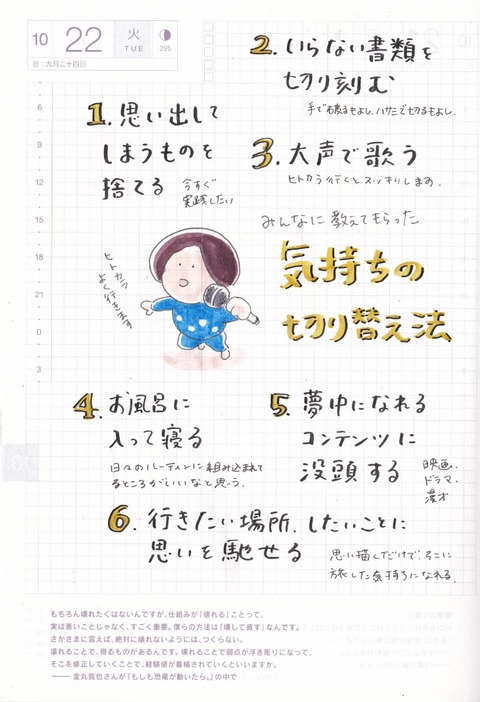 10 22 火 TUE 295
旧:九月二十四日
2. いらない書類を
切り刻む
手で破るもよし、ハサミで切るもよし。
1. 思い出して
しまうものを
捨てる
今すぐ
実践したい
3. 大声で歌う
ヒトカラ行くとスッキリします。
みんなに教えてもらった
気持ちの
切り替え法
ヒトカラ
よく行きます
6
9
12
15
18
21
0
3
4. お風呂に
入って寝る
日々のルーティンに組み込まれて
るところがいいなと思う。
5. 夢中になれる
コンテンツに
没頭する
映画、
ドラマ、
漫才
6. 行きたい場所、したいことに
思いを馳せる
思い描くだけで、そこに
旅した気持ちになれる。
もちろん壊れたくはないんですが、仕組みが「壊れる」ことって、
実は悪いことじゃなく、すごく重要。僕らの方法は「壊して直す」なんです。
さかさまに言えば、絶対に壊れないようには、つくらない。
壊れることで、得るものがあるんです。壊れることで弱点が浮き彫りになって、
そこを修正していくことで、経験値が蓄積されていくといいますか。
—— 金丸賀也さんが『もしも恐竜が動いたら。』の中で